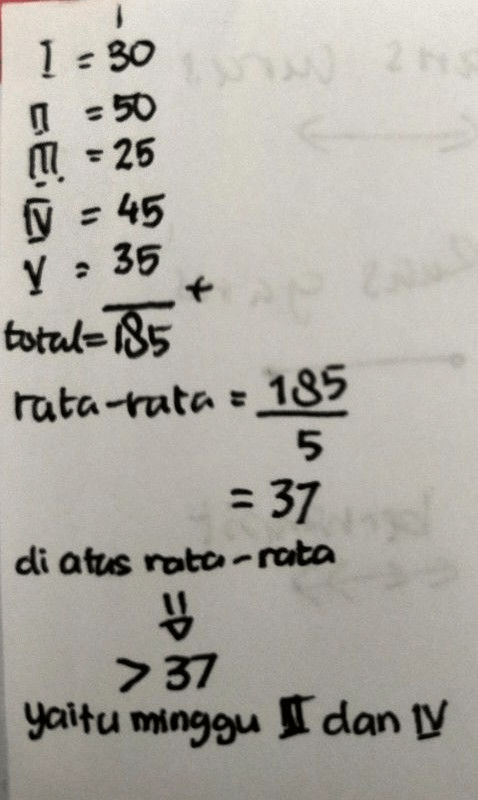 I = 30
II = 50
III = 25
IV = 45
V = 35
+
total = 185
rata-rata = 185
5
= 37
di atas rata-rata
> 37
yaitu minggu II dan IV